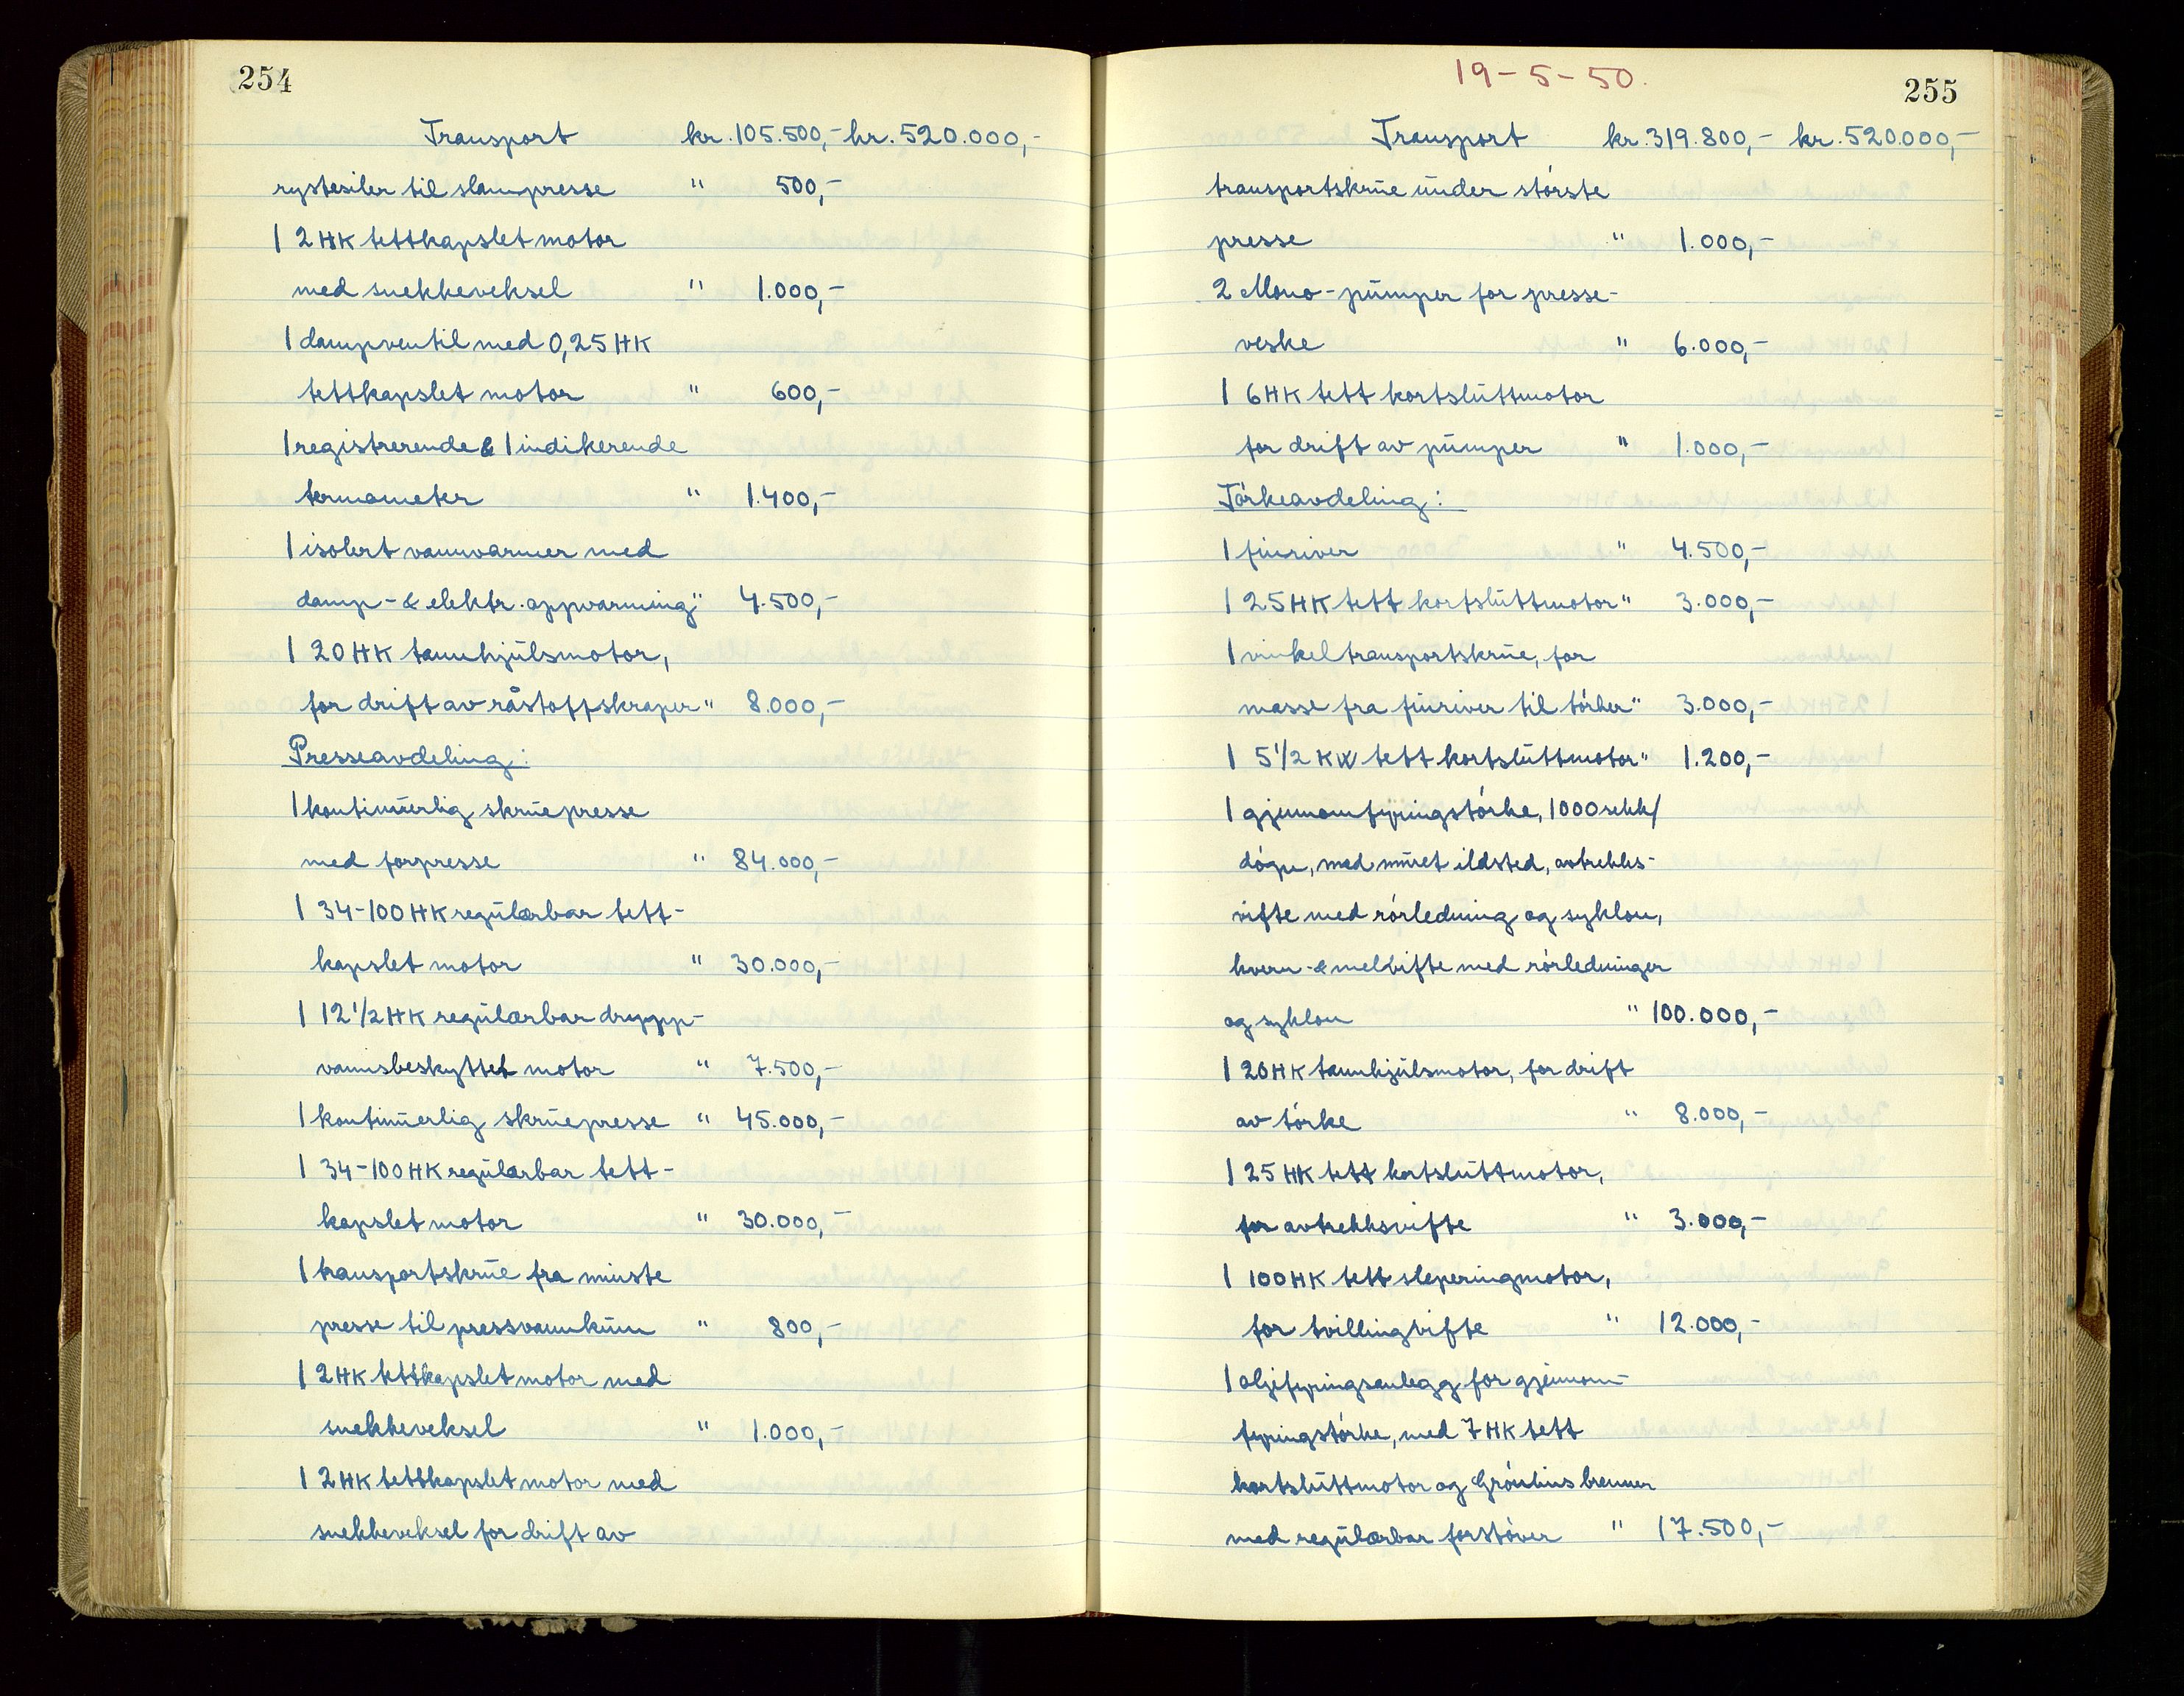 254
Transport kr. 105.500,- kr. 520.000,-
rystesiler til slampresse " 500,-
1 2 HK tettkapslet motor
med snekkeveksel " 1.000,-
1 dampventil med 0,25 HK
tettkapslet motor " 600,-
1 registrerende & 1 indikerende
termometer " 1.400,-
1 isolert vannvarmer med
damp- & elektr. oppvarming " 4.500,-
1 20 HK tannhjulsmotor,
for drift av råstoffskraper " 8.000,-
Presseavdeling:
1 kontinuerlig skruepresse
med forpresse " 84.000,-
1 34-100 HK regulerbar tett-
kapslet motor " 30.000,-
1 12 1/2 HK regulærbar drypp-
vannsbeskyttet motor " 7.500,-
1 kontinuerlig skruepresse " 45.000,-
1 34-100 HK regulærbar tett-
kapslet motor " 30.000,-
1 transportskrue fra minste
presse til pressvannkum " 800,-
1 2 HK tettkapslet motor med
snekkeveksel " 1.000,-
1 2 HK tettkapslet motor med
snekkeveksel for drift av
19-5-50.
255
Transport kr. 319.800,- kr. 520.000,-
transportskrue under største
presse " 1.000,-
2 Mono-pumper for presse-
veske " 6.000,-
1 6 HK tett kortsluttmotor
for drift av pumper " 1.000,-
Tørkeavdeling:
1 finriver " 4.500,-
1 25 HK tett kortsluttmotor " 3.000,-
1 vinkeltransportskrue, for
masse fra finriver til tørker " 3.000,-
1 5 1/2 KW tett kortsluttmotor " 1.200,-
1 gjennomfyringstørke, 1000 sekk/
døgn, med muret ildsted, avtrekks-
vifte med rørledning og syklon,
kvern- & melvifte med rørledninger
og syklon " 100.000,-
1 20 HK tannhjulsmotor, for drift
av tørke " 8.000,-
1 25 HK tett kortsluttmotor,
for avtrekksvifte " 3.000,-
1 100 HK tett sleperingmotor,
for tvillingvifte " 12.000,-
1 oljefyringsanlegg for gjennom-
fyringstørke, med 7 HK tett
kortsluttmotor og Grönhus brenner
med regulærbar forstøver " 17.500,-